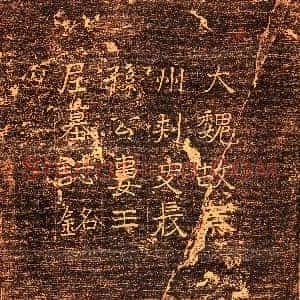 大魏故
州刺史長
孫公妻王
墓誌銘